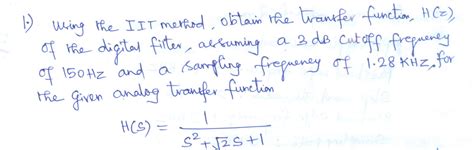 1.) Using the IIT method, obtain the transfer function, H(z),
of the digital filter, assuming a 3 dB cutoff frequency
of 150Hz and a sampling frequency of 1.28 KHz, for
the given analog transfer function
H(s) = 1 / (s² + √2 s + 1)